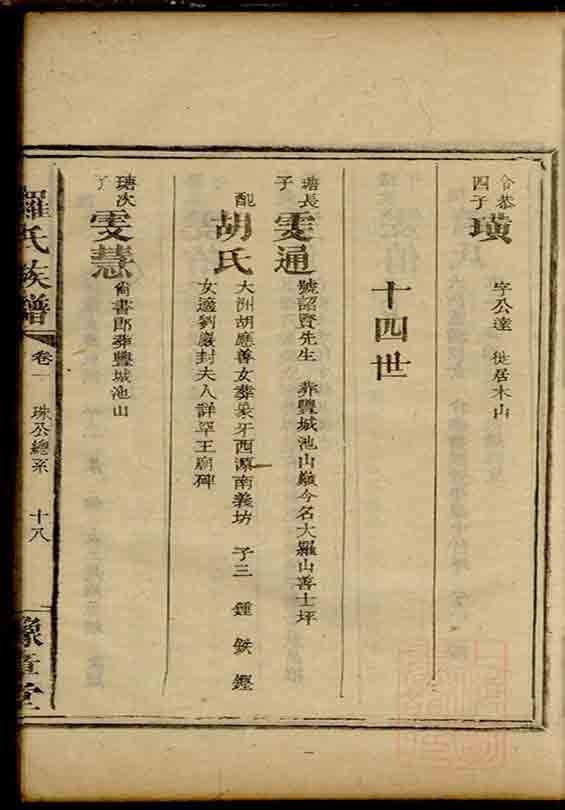 令恭
四子
璜
字公達 徙居木山
十四世
瑭長
子
雯通
號詔賢先生 葬豐城池山巔今名大羅山善士坪
配
胡氏
大洲胡應善女葬泉牙西源南義坊 子三 鍾 鉄 鏗
女適劉嚴封夫人詳單王廟碑
瑭次
子
雯慧
尙書郎葬豐城池山
羅氏族譜
卷一
珠公總系
十八
豫章堂